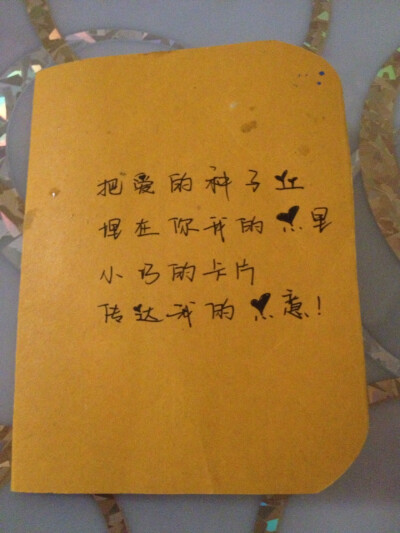 把爱的种子
埋在你我的心里
小巧的卡片
传达我的心意!